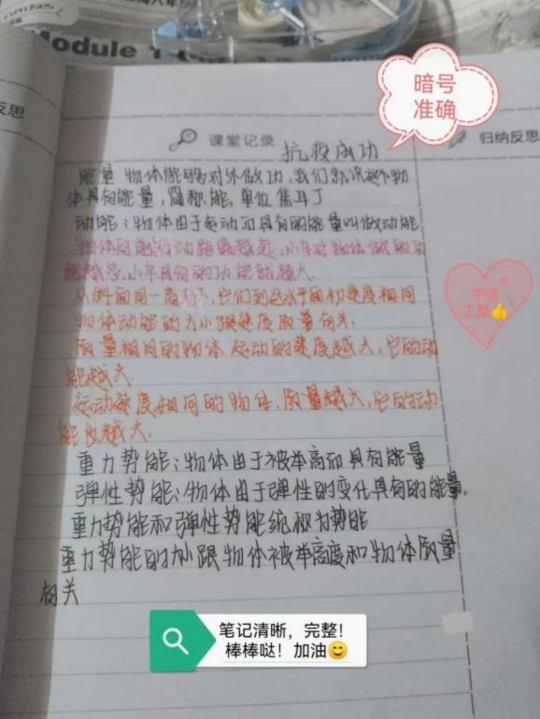 Module 1
暗号
准确
反思
课堂记录
归纳反思
抗疫成功
能量 物体能够对外做功,我们就说这个物
体具有能量,简称能,单位 焦耳 J
动能:物体由于运动而具有的能量叫做动能
功越多,小车具有的功能就越大.
从斜面同一高 下,它们到达水平面初速度相同
物体动能的大小跟速度质量有关.
质量相同的物体 运动的速度越大,它的动
能越大.
运动速度相同的物体,质量越大,它的动
能也越大.
重力势能:物体由于被举高而具有能量
弹性势能:物体由于弹性的变化具有的能量.
重力势能和弹性势能统称为势能
重力势能的大小跟物体被举高度和物体质量
有关
字迹
工整👍
笔记清晰,完整!
棒棒哒!加油😊